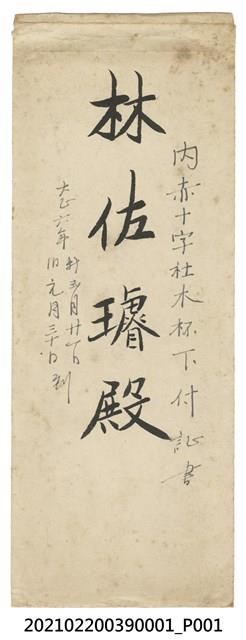 内赤十字社木杯下付証書
林佐璿殿
大正六年 新弐月廿一日
旧元月三十日 到
202102200390001_P001